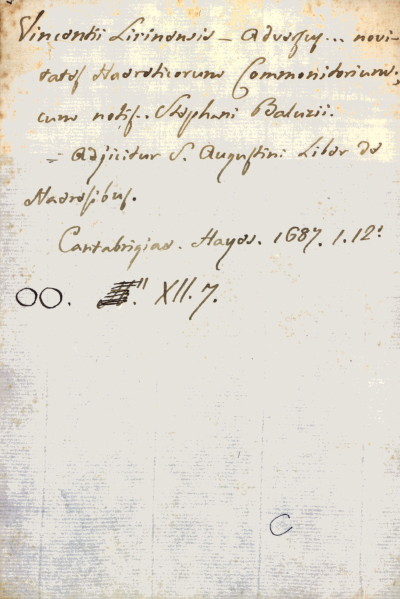 Vincentii Lirinensis — Adversus... novi-
tates Haereticorum Commonitorium;
cum notis.. Stephani Baluzii.
= Adjicitur S. Augustini Liber de
Haeresibus.
Cantabrigiae. Hayes. 1687. 1.12.
OO. XII. 7.
C